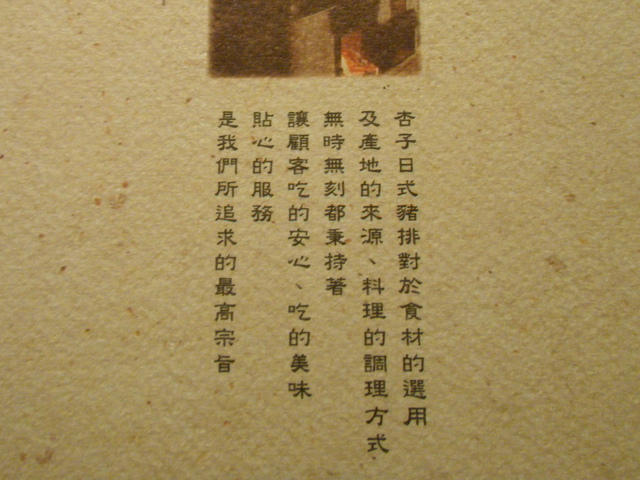 杏子日式豬排對於食材的選用
及產地的來源、料理的調理方式
無時無刻都秉持著
讓顧客吃的安心、吃的美味
貼心的服務
是我們所追求的最高宗旨